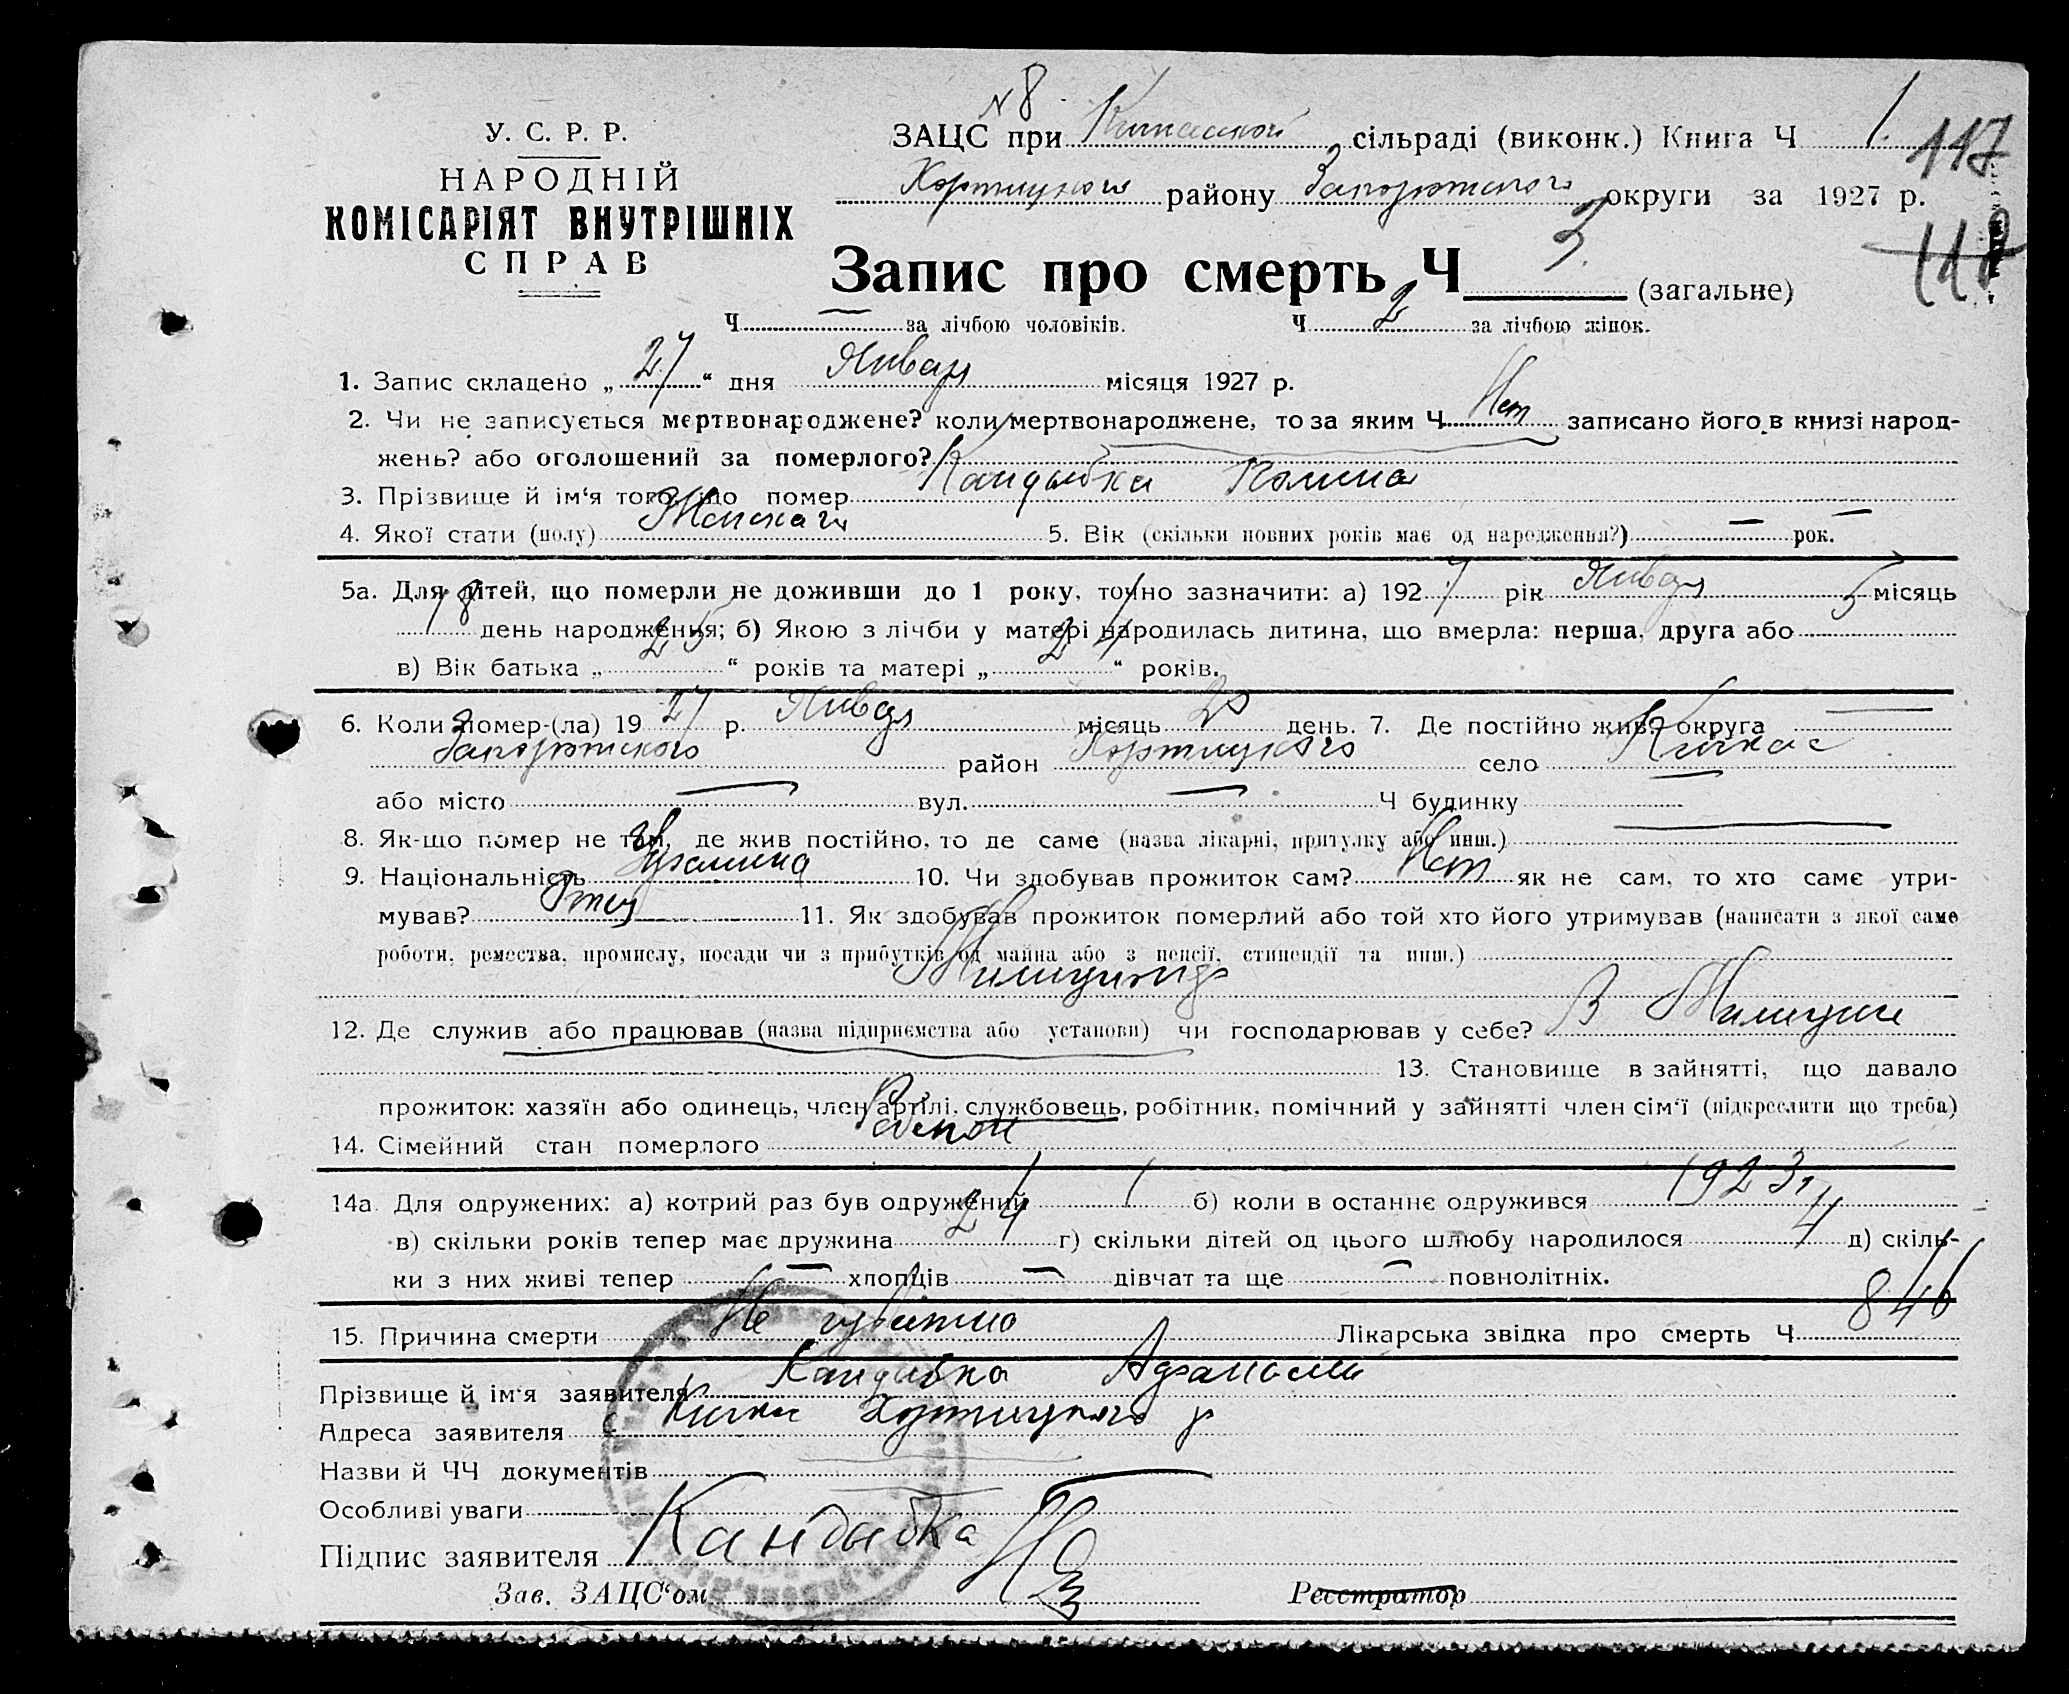 № 8.
У. С. Р. Р.
НАРОДНІЙ
КОМІСАРІЯТ ВНУТРІШНІХ
СПРАВ
ЗАЦС при Кичкаской сільраді (виконк.) Книга Ч 1.
117
Хортицкого району Запорожского округи за 1927 р.
Запис про смерть Ч 3. (загальне)
118
Ч — за лічбою чоловіків. Ч 2 за лічбою жінок.
1. Запис складено „ 27 “ дня Январ місяця 1927 р.
2. Чи не записується мертвонароджене? коли мертвонароджене, то за яким Ч Нет записано його в книзі народ-
жень? або оголошений за померлого?
3. Прізвище й ім'я того, що помер Кандыбка Полина
4. Якої стати (полу) Женскаго 5. Вік (скільки повних років має од народження?) — рок. —
5а. Для дітей, що померли не доживши до 1 року, точно зазначити: а) 192 7 рік Январ місяць
18 день народження; б) Якою з лічби у матері народилась дитина, що вмерла: перша, друга або 5
в) Вік батька „ 25 “ років та матері „ 24 “ років.
6. Коли помер-(ла) 19 27 р. Январ місяць 20 день. 7. Де постійно жив? округа —
Запорожского район Хортицкого село Кичкас
або місто — вул. — Ч будинку —
8. Як-що помер не там, де жив постійно, то де саме (назва лікарні, притулку або инш.) —
9. Національність Украинка 10. Чи здобував прожиток сам? Нет як не сам, то хто саме утри-
мував? Отец 11. Як здобував прожиток померлий або той хто його утримував (написати з якої саме
роботи, ремества, промислу, посади чи з прибутків од майна або з пенсії, стипендії та инш.)
Милиционер
12. Де служив або працював (назва підприємства або установи) чи господарював у себе? В Милиции
13. Становище в зайнятті, що давало
прожиток: хазяїн або одинець, член артілі, службовець, робітник, помічний у зайнятті член сім'ї (підкреслити що треба)
14. Сімейний стан померлого Ребенок
14а. Для одружених: а) котрий раз був одружений 1 б) коли в останнє одружився 1923 г.
в) скільки років тепер має дружина 24 г) скільки дітей од цього шлюбу народилося 4 д) скіль-
ки з них живі тепер — хлопців — дівчат та ще — повнолітніх.
15. Причина смерти Не Лікарська звідка про смерть Ч 846
Прізвище й ім'я заявителя Кандыбка
Адреса заявителя с Кичкас Хортицкого р
Назви й ЧЧ документів —
Особливі уваги —
Підпис заявителя Кандыбка
Зав. ЗАЦС'ом Реєстратор